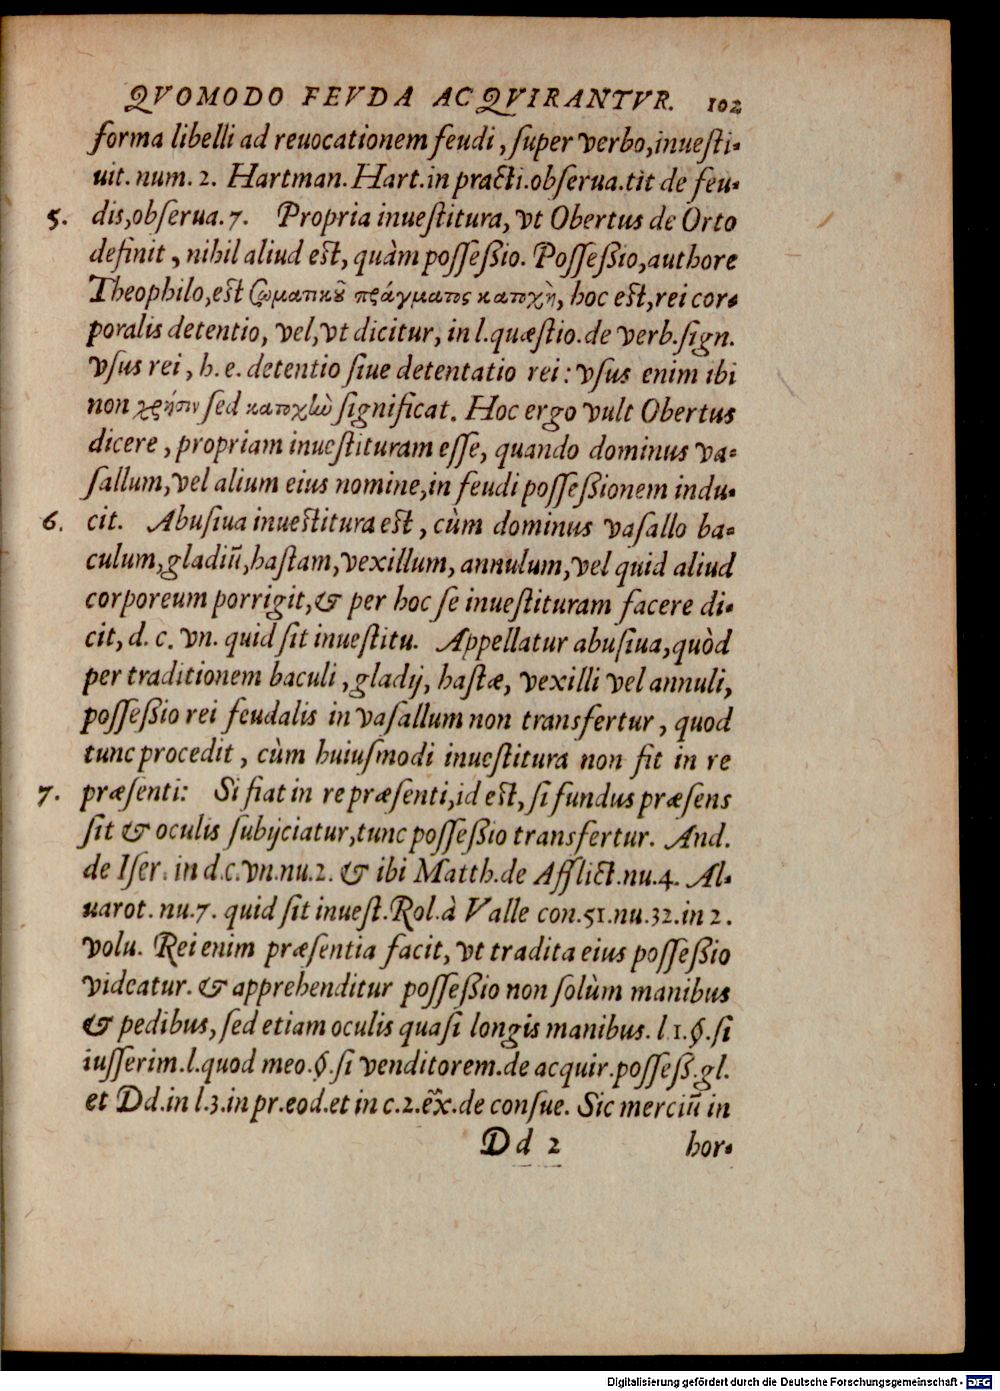 QVOMODO FEVDA ACQVIRANTVR. 102
forma libelli ad reuocationem feudi, ſuper verbo, inueſti-
uit. num. 2. Hartman. Hart. in practi. obſerua. tit de feu-
5. dis, obſerua. 7. Propria inueſtitura, vt Obertus de Orto
definit, nihil aliud eſt, quàm poſſeßio. Poſſeßio, authore
Theophilo, eſt σωματικοῦ πράγματος κατοχὴ, hoc eſt, rei cor-
poralis detentio, vel, vt dicitur, in l. quæſtio. de verb. ſign.
vſus rei, h. e. detentio ſiue detentatio rei: vſus enim ibi
non χρῆσιν ſed κατοχὴν ſignificat. Hoc ergo vult Obertus
dicere, propriam inueſtituram eſſe, quando dominus va-
ſallum, vel alium eius nomine, in feudi poſſeßionem indu-
6. cit. Abuſiua inueſtitura eſt, cùm dominus vaſallo ba-
culum, gladiũ, haſtam, vexillum, annulum, vel quid aliud
corporeum porrigit, & per hoc ſe inueſtituram facere di-
cit, d. c. vn. quid ſit inueſtitu. Appellatur abuſiua, quòd
per traditionem baculi, gladij, haſtæ, vexilli vel annuli,
poſſeßio rei feudalis in vaſallum non transfertur, quod
tunc procedit, cùm huiuſmodi inueſtitura non fit in re
7. præſenti: Si fiat in re præſenti, id eſt, ſi fundus præſens
ſit & oculis ſubijciatur, tunc poſſeßio transfertur. And.
de Iſer. in d. c. vn. nu. 2. & ibi Matth. de Afflict. nu. 4. Al-
uarot. nu. 7. quid ſit inueſt. Rol. à Valle con. 51. nu. 32. in 2.
volu. Rei enim præſentia facit, vt tradita eius poſſeßio
videatur. & apprehenditur poſſeßio non ſolùm manibus
& pedibus, ſed etiam oculis quaſi longis manibus. l 1. §. ſi
iuſſerim. l. quod meo. §. ſi venditorem. de acquir. poſſeß. gl.
et Dd. in l. 3. in pr. eod. et in c. 2. ex̃. de conſue. Sic merciũ in
Dd 2 hor-
Digitalisierung gefördert durch die Deutsche Forschungsgemeinschaft - DFG